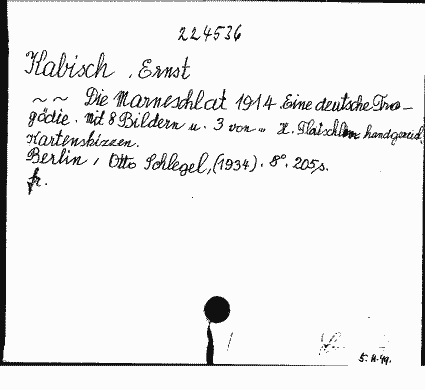 224536
Kabisch, Ernst
~ ~ Die Marneschlat 1914. Eine deutsche Tra-
gödie. Mit 8 Bildern u. 3 von „ H. Flaischlen handgezeich.
Kartenskizzen.
Berlin, Otto Schlegel, (1934). 8°. 205 s.
fr.